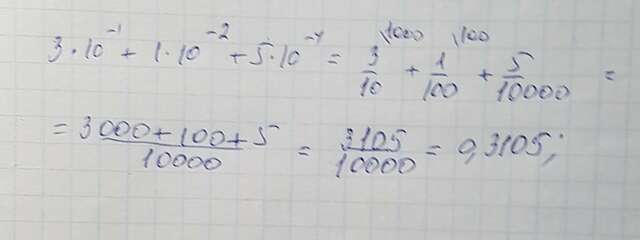 3·10⁻¹ + 1·10⁻² + 5·10⁻⁴ = 3/10 \1000 + 1/100 \100 + 5/10000 =
= (3000+100+5)/10000 = 3105/10000 = 0,3105;